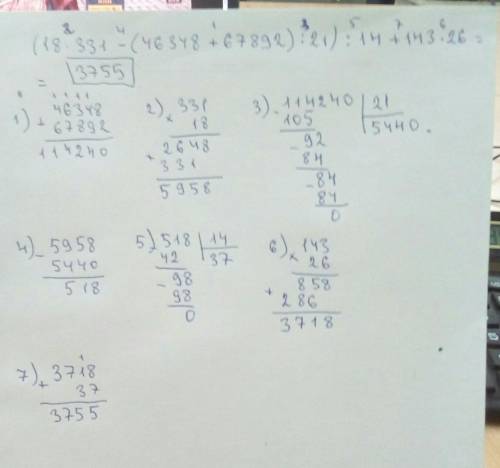 (18·331-(46348+67892):21):14+143·26=
= 3755
1) + 46348
67892
114240
2) × 331
18
+ 2648
331
5958
3) - 114240 | 21
105 | 5440.
- 92
84
- 84
84
0
4) - 5958
5440
518
5) - 518 | 14
42 | 37
- 98
98
0
6) × 143
26
+ 858
286
3718
7) + 3718
37
3755